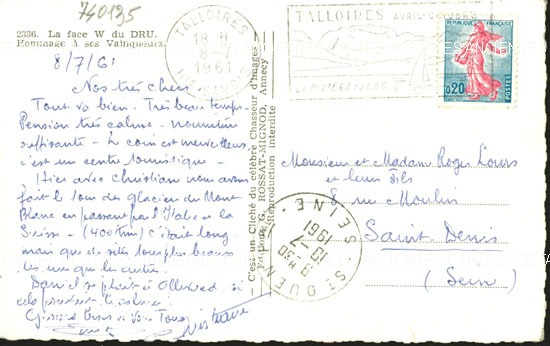 740135
2336. La face W du DRU.
Hommage à ses Vainqueurs.
8/7/61
Nos très chers
Tout va bien. Très beau temps.
Pension très calme. nourriture
suffisante. Le coin est merveilleux
c'est un centre touristique -
Hier avec Christian nous avons
fait le tour des glaciers du Mont
Blanc en passant par l'Italie et la
Suisse - (400 km) c'était long
mais que de sites tous plus beaux
les uns que les autres.
Daniel se plaît à
Gros Bises à Vous Tous
C'est un Cliché du célèbre Chasseur d'Images
Editions G. ROSSAT-MIGNOD, Annecy
Reproduction interdite
TALLOIRES
18 H
8-7
1961
TALLOIRES AVRIL-OCTOBRE
0,20
POSTES
Monsieur et Madame Roger Louis
et leurs Fils
8 rue Moulin
Saint Denis
(Seine)
ST OUEN
SEINE
10-7
1961